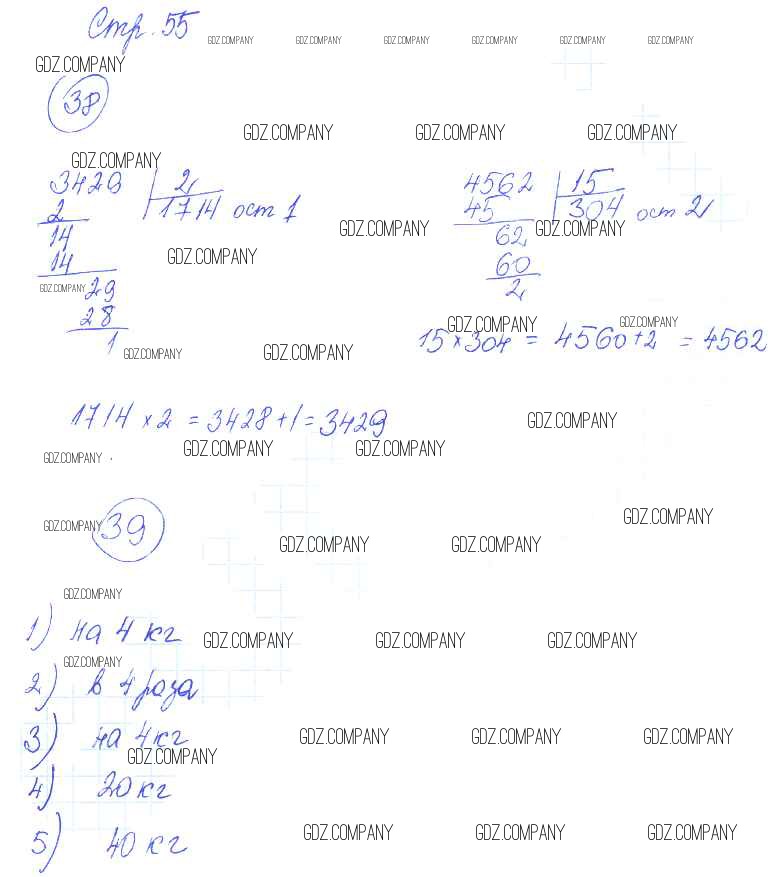 Стр. 55
GDZ.COMPANY GDZ.COMPANY GDZ.COMPANY GDZ.COMPANY GDZ.COMPANY GDZ.COMPANY
GDZ.COMPANY
38
GDZ.COMPANY GDZ.COMPANY GDZ.COMPANY
GDZ.COMPANY
3429 2 4562 15
2 1714 ост 1 45 304 ост 2
14 GDZ.COMPANY 62 GDZ.COMPANY
14 GDZ.COMPANY 60
GDZ.COMPANY 29 2
28 GDZ.COMPANY GDZ.COMPANY
1 15 × 304 = 4560 + 2 = 4562
GDZ.COMPANY GDZ.COMPANY
1714 × 2 = 3428 + 1 = 3429 GDZ.COMPANY
GDZ.COMPANY GDZ.COMPANY GDZ.COMPANY
GDZ.COMPANY 39 GDZ.COMPANY
GDZ.COMPANY GDZ.COMPANY
GDZ.COMPANY
1) на 4 кг GDZ.COMPANY GDZ.COMPANY GDZ.COMPANY
GDZ.COMPANY
2) в 4 раза
3) на 4 кг GDZ.COMPANY GDZ.COMPANY GDZ.COMPANY
GDZ.COMPANY
4) 20 кг
5) 40 кг GDZ.COMPANY GDZ.COMPANY GDZ.COMPANY